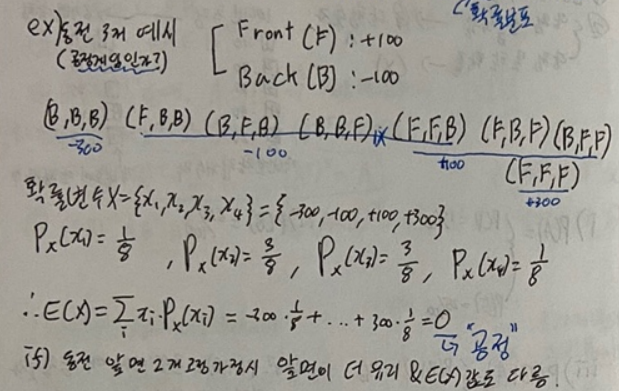 확률분포
ex) 동전 3개 예시 Front (F) : +100
(공정게임인가?) Back (B) : -100
(B,B,B) (F,B,B) (B,F,B) (B,B,F) (F,F,B) (F,B,F) (B,F,F)
-300 -100 +100 (F,F,F)
+300
확률변수 X={x₁,x₂,x₃,x₄}={-300,-100,+100,+300}
Pₓ(x₁)=1/8 , Pₓ(x₂)=3/8 , Pₓ(x₃)=3/8 , Pₓ(x₄)=1/8
∴E(X)=∑ᵢ xᵢ·Pₓ(xᵢ) = -300·1/8 + ... + 300·1/8 = 0
↳ "공정"
if) 동전 앞면 2개 고정 가정시 앞면이 더 유리 & E(X)값도 다름.